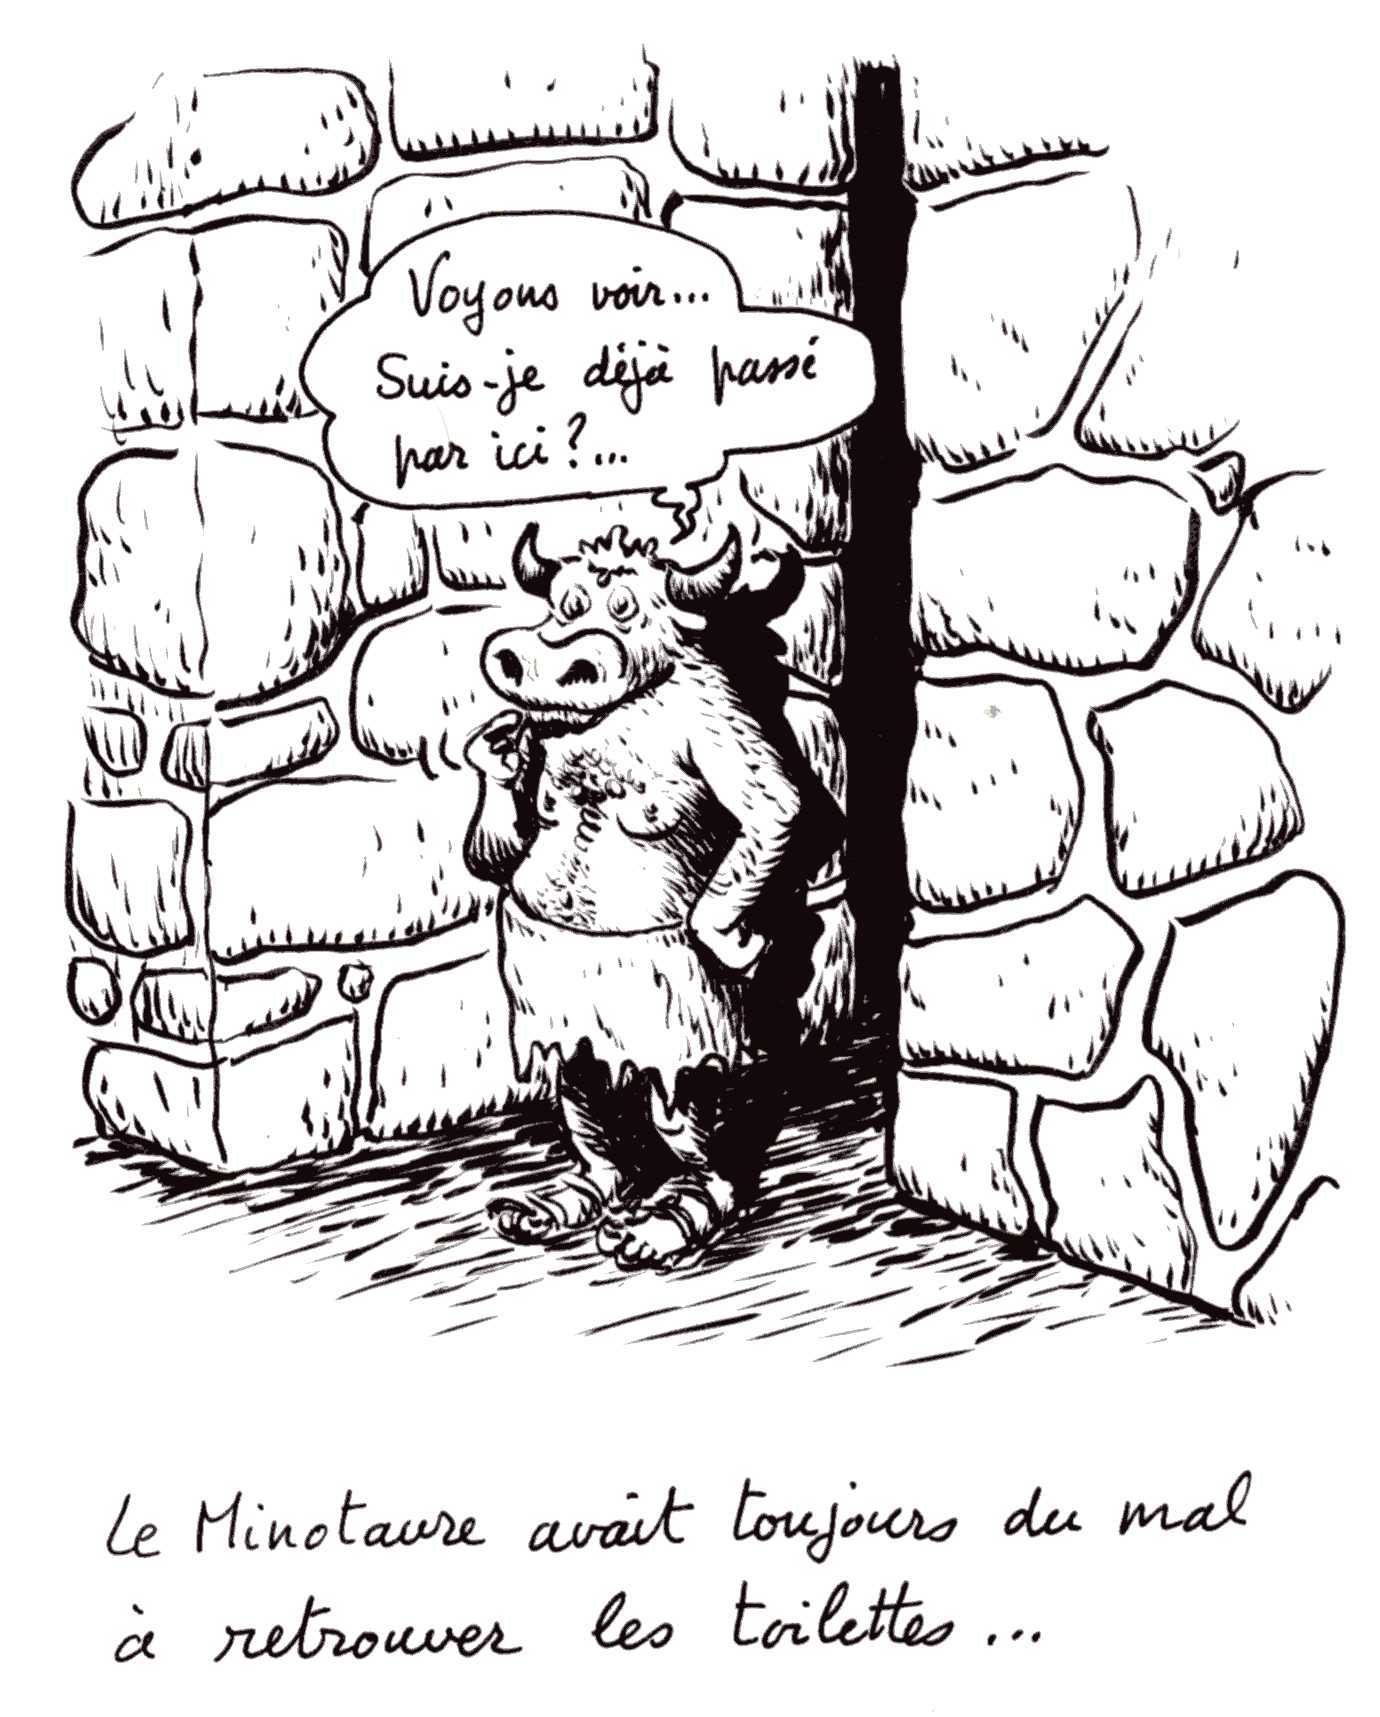 Voyons voir...
Suis-je déjà passé
par ici ?...
Le Minotaure avait toujours du mal
à retrouver les toilettes...